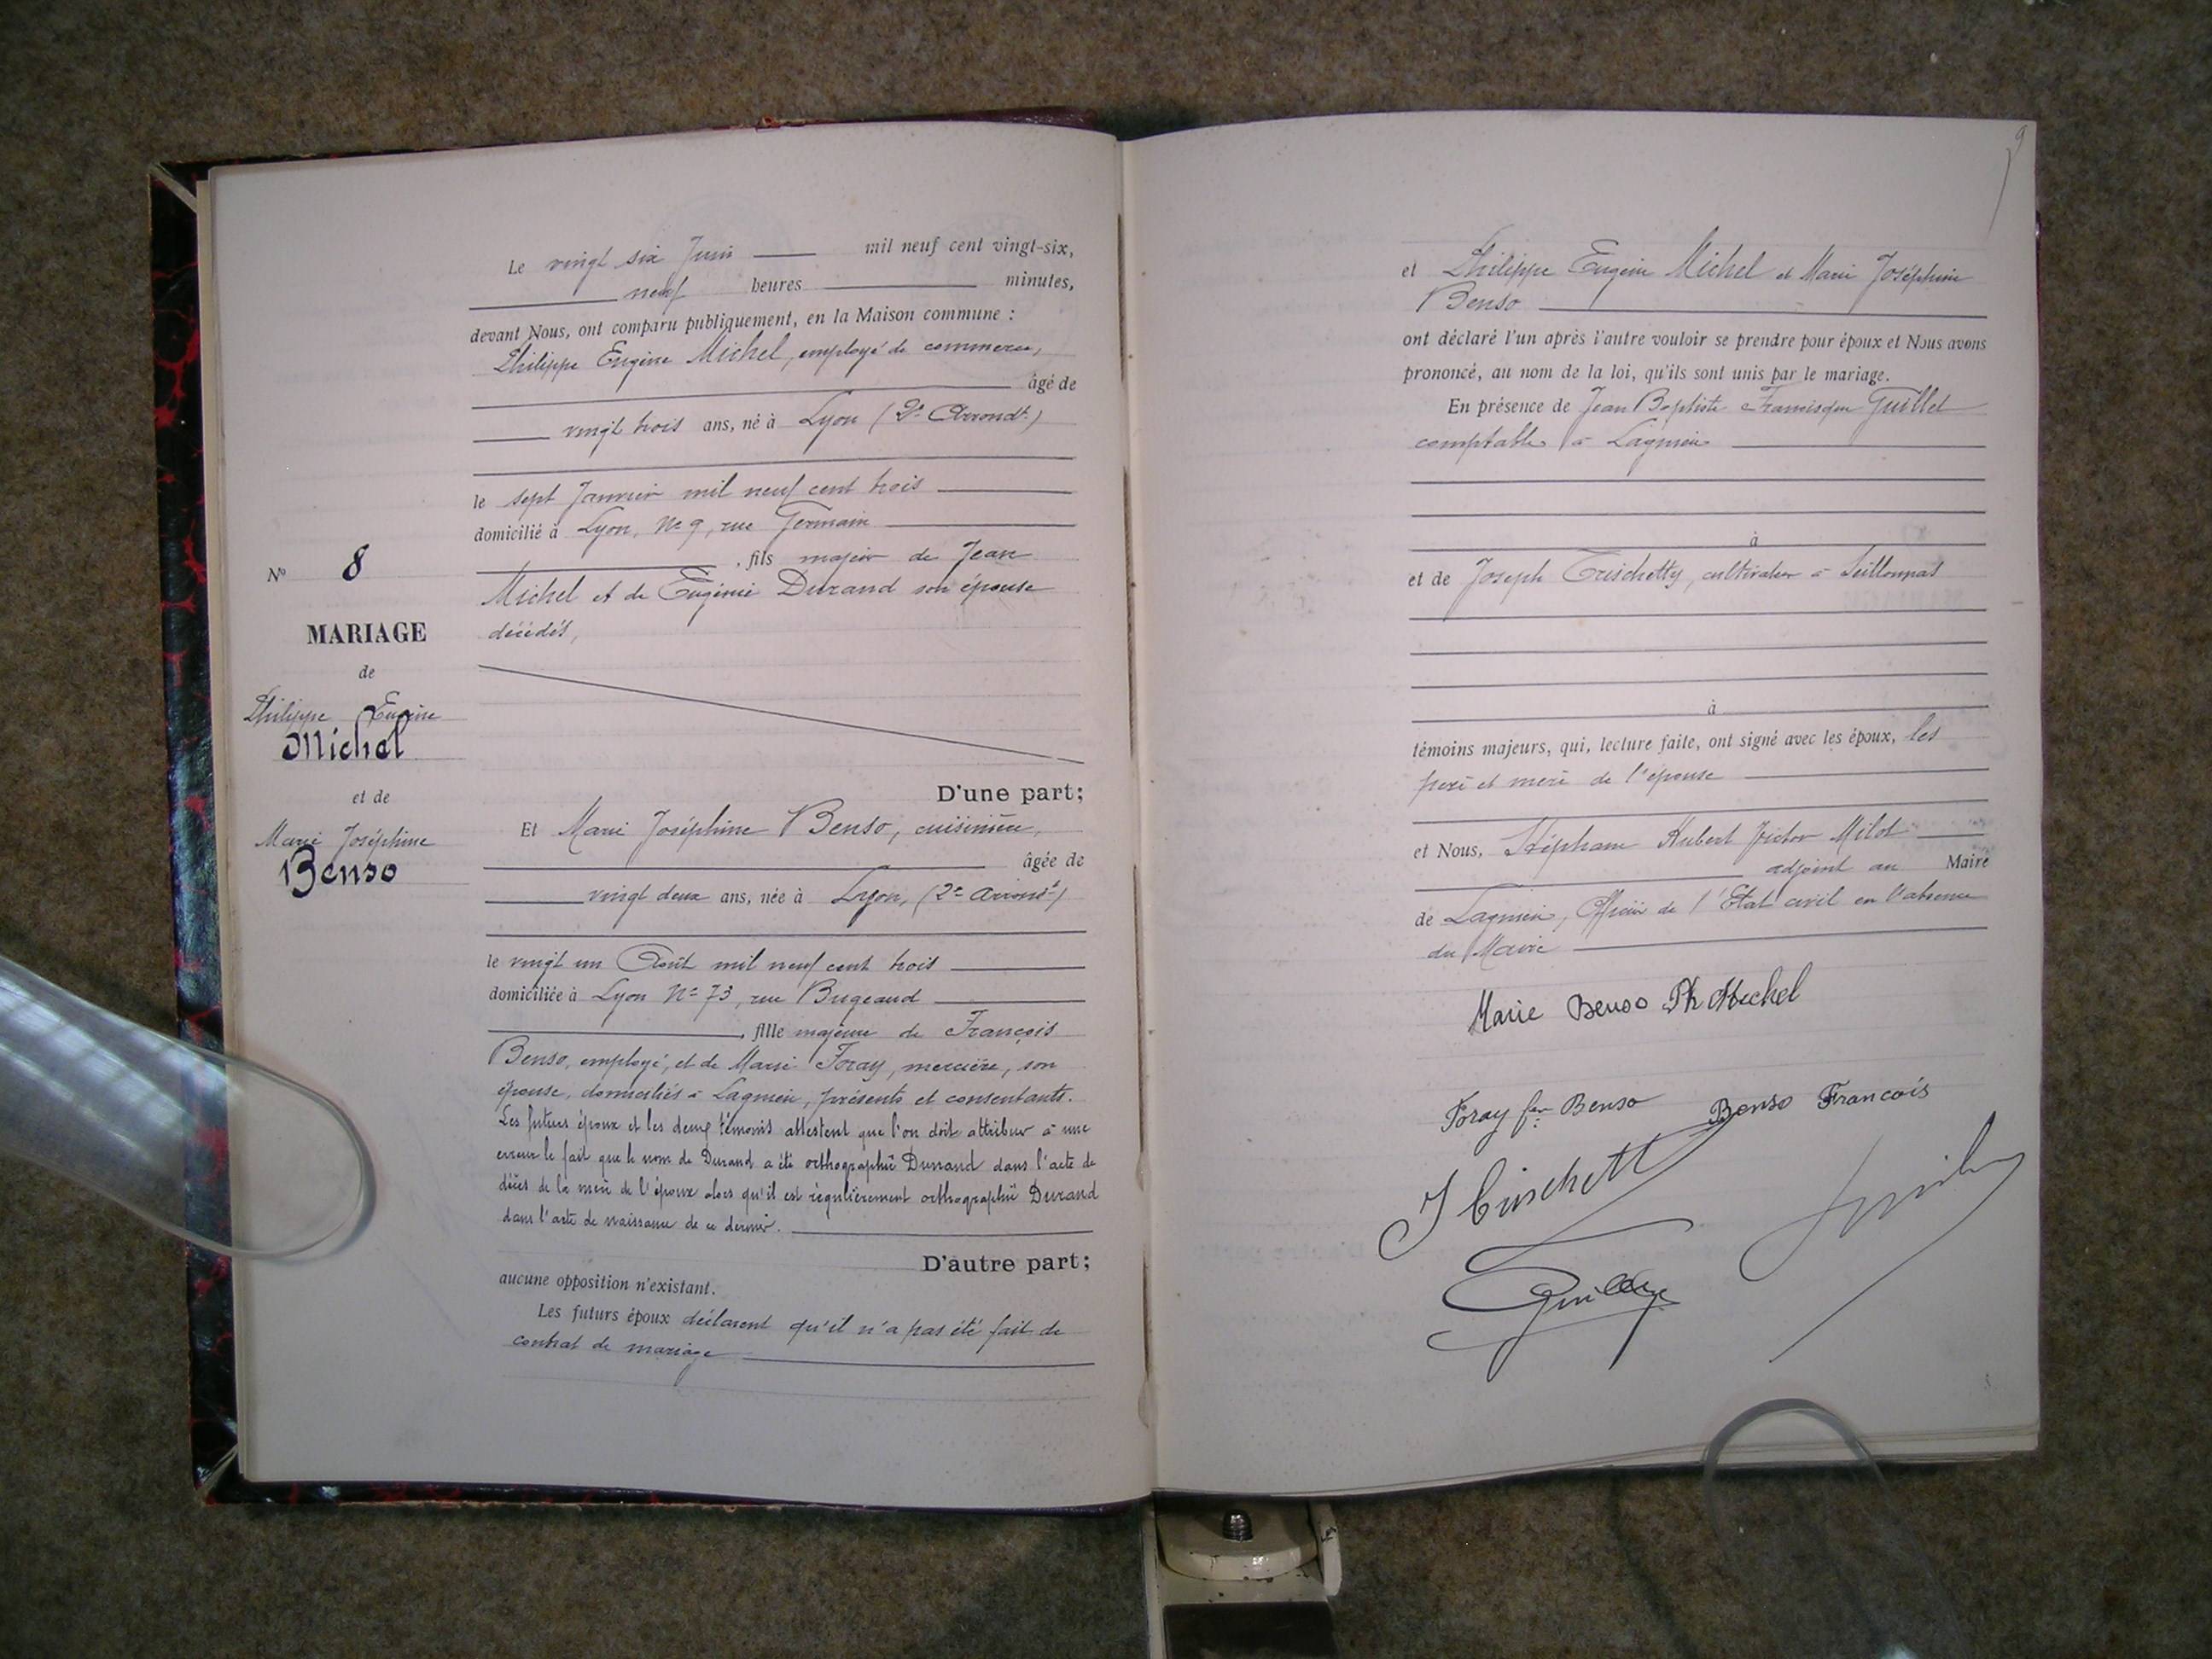 Le vingt six Juin mil neuf cent vingt-six,
neuf heures minutes,
devant Nous, ont comparu publiquement, en la Maison commune :
Philippe Eugène Michel, employé de commerce,
âgé de
vingt trois ans, né à Lyon (2e Arrondt.)
le sept Janvier mil neuf cent trois
domicilié à Lyon, No 9, rue Germain
, fils majeur de Jean
Michel et de Eugénie Durand son épouse
décédés,
No 8
MARIAGE
de
Philippe Eugène
Michel
et de
Marie Joséphine
Benso
D'une part;
Et Marie Joséphine Benso, cuisinière,
âgée de
vingt deux ans, née à Lyon, (2e arrondt)
le vingt un Août mil neuf cent trois
domiciliée à Lyon No 73, rue Bugeaud
, fille majeure de François
Benso, employé, et de Marie Foray, mercière, son
épouse, domiciliés à Lagnieu, présents et consentants.
Les futurs époux et les deux témoins attestent que l'on doit attribuer à une
erreur le fait que le nom de Durand a été orthographié Dunand dans l'acte de
décès de la mère de l'époux alors qu'il est régulièrement orthographié Durand
dans l'acte de naissance de ce dernier.
D'autre part;
aucune opposition n'existant.
Les futurs époux déclarent qu'il n'a pas été fait de
contrat de mariage
9
et Philippe Eugène Michel et Marie Joséphine
Benso
ont déclaré l'un après l'autre vouloir se prendre pour époux et Nous avons
prononcé, au nom de la loi, qu'ils sont unis par le mariage.
En présence de Jean Baptiste Francisque Guillet
comptable à Lagnieu
à
et de Joseph Crischetty, cultivateur à Seillonnas
à
témoins majeurs, qui, lecture faite, ont signé avec les époux, les
père et mère de l'épouse
et Nous, Stéphane Hubert Victor Milot
adjoint au Maire
de Lagnieu, Officier de l'Etat civil en l'absence
du Maire
Marie Benso Ph Michel
Foray fem Benso Benso Francois
J Crischetty